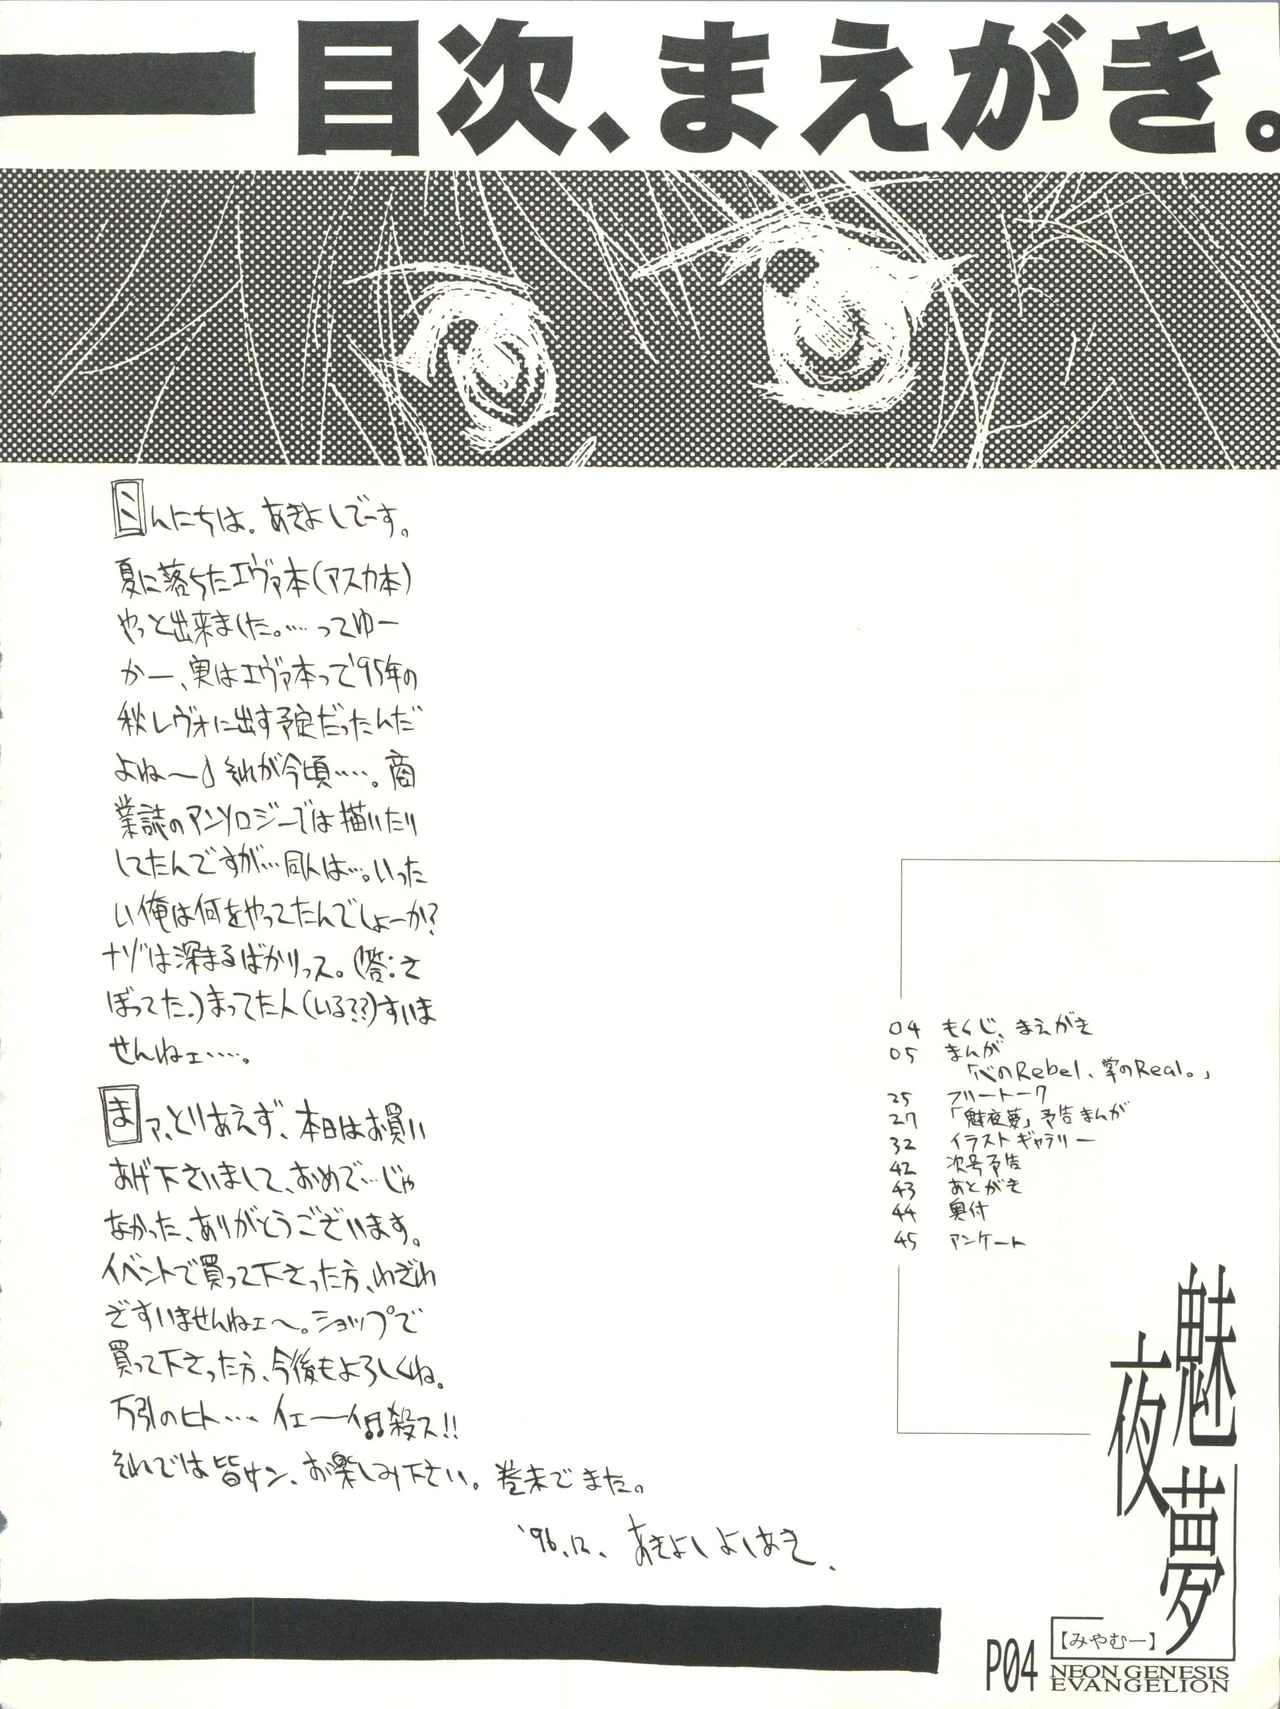 目次、まえがき。
こんにちは。あきよしでーす。
夏に落ちたエヴァ本(アスカ本)
やっと出来ました。…ってゆー
かー、実はエヴァ本って'95年の
秋レヴォに出す予定だったんだ
よね〜♪それが今頃……。商
業誌のアンソロジーでは描いたり
してたんですが…同人は…。いった
い俺は何をやってたんでしょーか?
ナゾは深まるばかりっス。(答:さ
ぼってた。)まってた人(いる??)すいま
せんねェ……。
まァ、とりあえず、本日はお買い
あげ下さいまして、おめで…じゃ
なかった、ありがとうございます。
イベントで買って下さった方、わざわ
ざすいませんねェ〜。ショップで
買って下さった方、今後もよろしくね。
万引のヒト…. イェーイ殺ス!!
それでは皆サン、お楽しみ下さい。巻末でまた。
'96.12. あきよしよしあき.
04 もくじ、まえがき
05 まんが
「心のRebel、掌のReal。」
25 フリートーク
27 「魅夜夢」予告まんが
32 イラストギャラリー
42 次号予告
43 あとがき
44 奥付
45 アンケート
魅夜夢
【みやむー】
P04
NEON GENESIS
EVANGELION